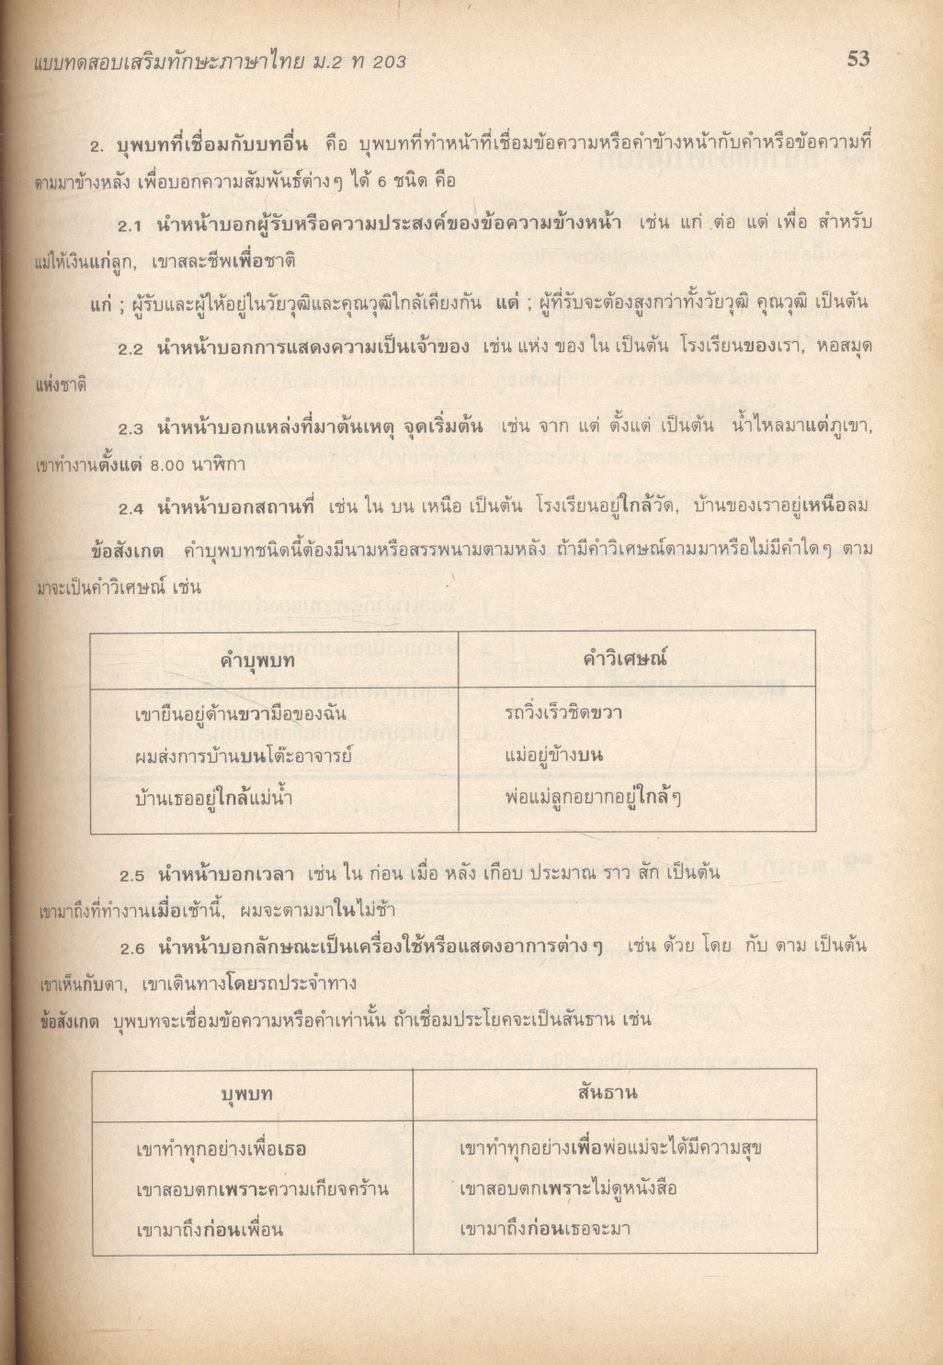 แบบทดสอบเสริมทักษะภาษาไทย ม.2 ท 203
53
2. บุพบทที่เชื่อมกับบทอื่น คือ บุพบทที่ทำหน้าที่เชื่อมข้อความหรือคำข้างหน้ากับคำหรือข้อความที่
ตามมาข้างหลัง เพื่อบอกความสัมพันธ์ต่างๆ ได้ 6 ชนิด คือ
2.1 นำหน้าบอกผู้รับหรือความประสงค์ของข้อความข้างหน้า เช่น แก่ ต่อ แด่ เพื่อ สำหรับ
แม่ให้เงินแก่ลูก, เขาสละชีพเพื่อชาติ
แก่ ; ผู้รับและผู้ให้อยู่ในวัยวุฒิและคุณวุฒิใกล้เคียงกัน แด่ ; ผู้ที่รับจะต้องสูงกว่าทั้งวัยวุฒิ คุณวุฒิ เป็นต้น
2.2 นำหน้าบอกการแสดงความเป็นเจ้าของ เช่น แห่ง ของ ใน เป็นต้น โรงเรียนของเรา, หอสมุด
แห่งชาติ
2.3 นำหน้าบอกแหล่งที่มาต้นเหตุ จุดเริ่มต้น เช่น จาก แต่ ตั้งแต่ เป็นต้น น้ำไหลมาแต่ภูเขา,
เขาทำงานตั้งแต่ 8.00 นาฬิกา
2.4 นำหน้าบอกสถานที่ เช่น ใน บน เหนือ เป็นต้น โรงเรียนอยู่ใกล้วัด, บ้านของเราอยู่เหนือลม
ข้อสังเกต คำบุพบทชนิดนี้ต้องมีนามหรือสรรพนามตามหลัง ถ้ามีคำวิเศษณ์ตามมาหรือไม่มีคำใดๆ ตาม
มาจะเป็นคำวิเศษณ์ เช่น
คำบุพบท
คำวิเศษณ์
เขายืนอยู่ด้านขวามือของฉัน
รถวิ่งเร็วชิดขวา
ผมส่งการบ้านบนโต๊ะอาจารย์
แม่อยู่ข้างบน
บ้านเธออยู่ใกล้แม่น้ำ
พ่อแม่ลูกอยากอยู่ใกล้ๆ
2.5 นำหน้าบอกเวลา เช่น ใน ก่อน เมื่อ หลัง เกือบ ประมาณ ราว สัก เป็นต้น
เขามาถึงที่ทำงานเมื่อเช้านี้, ผมจะตามมาในไม่ช้า
2.6 นำหน้าบอกลักษณะเป็นเครื่องใช้หรือแสดงอาการต่างๆ เช่น ด้วย โดย กับ ตาม เป็นต้น
เขาเห็นกับตา, เขาเดินทางโดยรถประจำทาง
ข้อสังเกต บุพบทจะเชื่อมข้อความหรือคำเท่านั้น ถ้าเชื่อมประโยคจะเป็นสันธาน เช่น
บุพบท
สันธาน
เขาทำทุกอย่างเพื่อเธอ
เขาทำทุกอย่างเพื่อพ่อแม่จะได้มีความสุข
เขาสอบตกเพราะความเกียจคร้าน
เขาสอบตกเพราะไม่ดูหนังสือ
เขามาถึงก่อนเพื่อน
เขามาถึงก่อนเธอจะมา